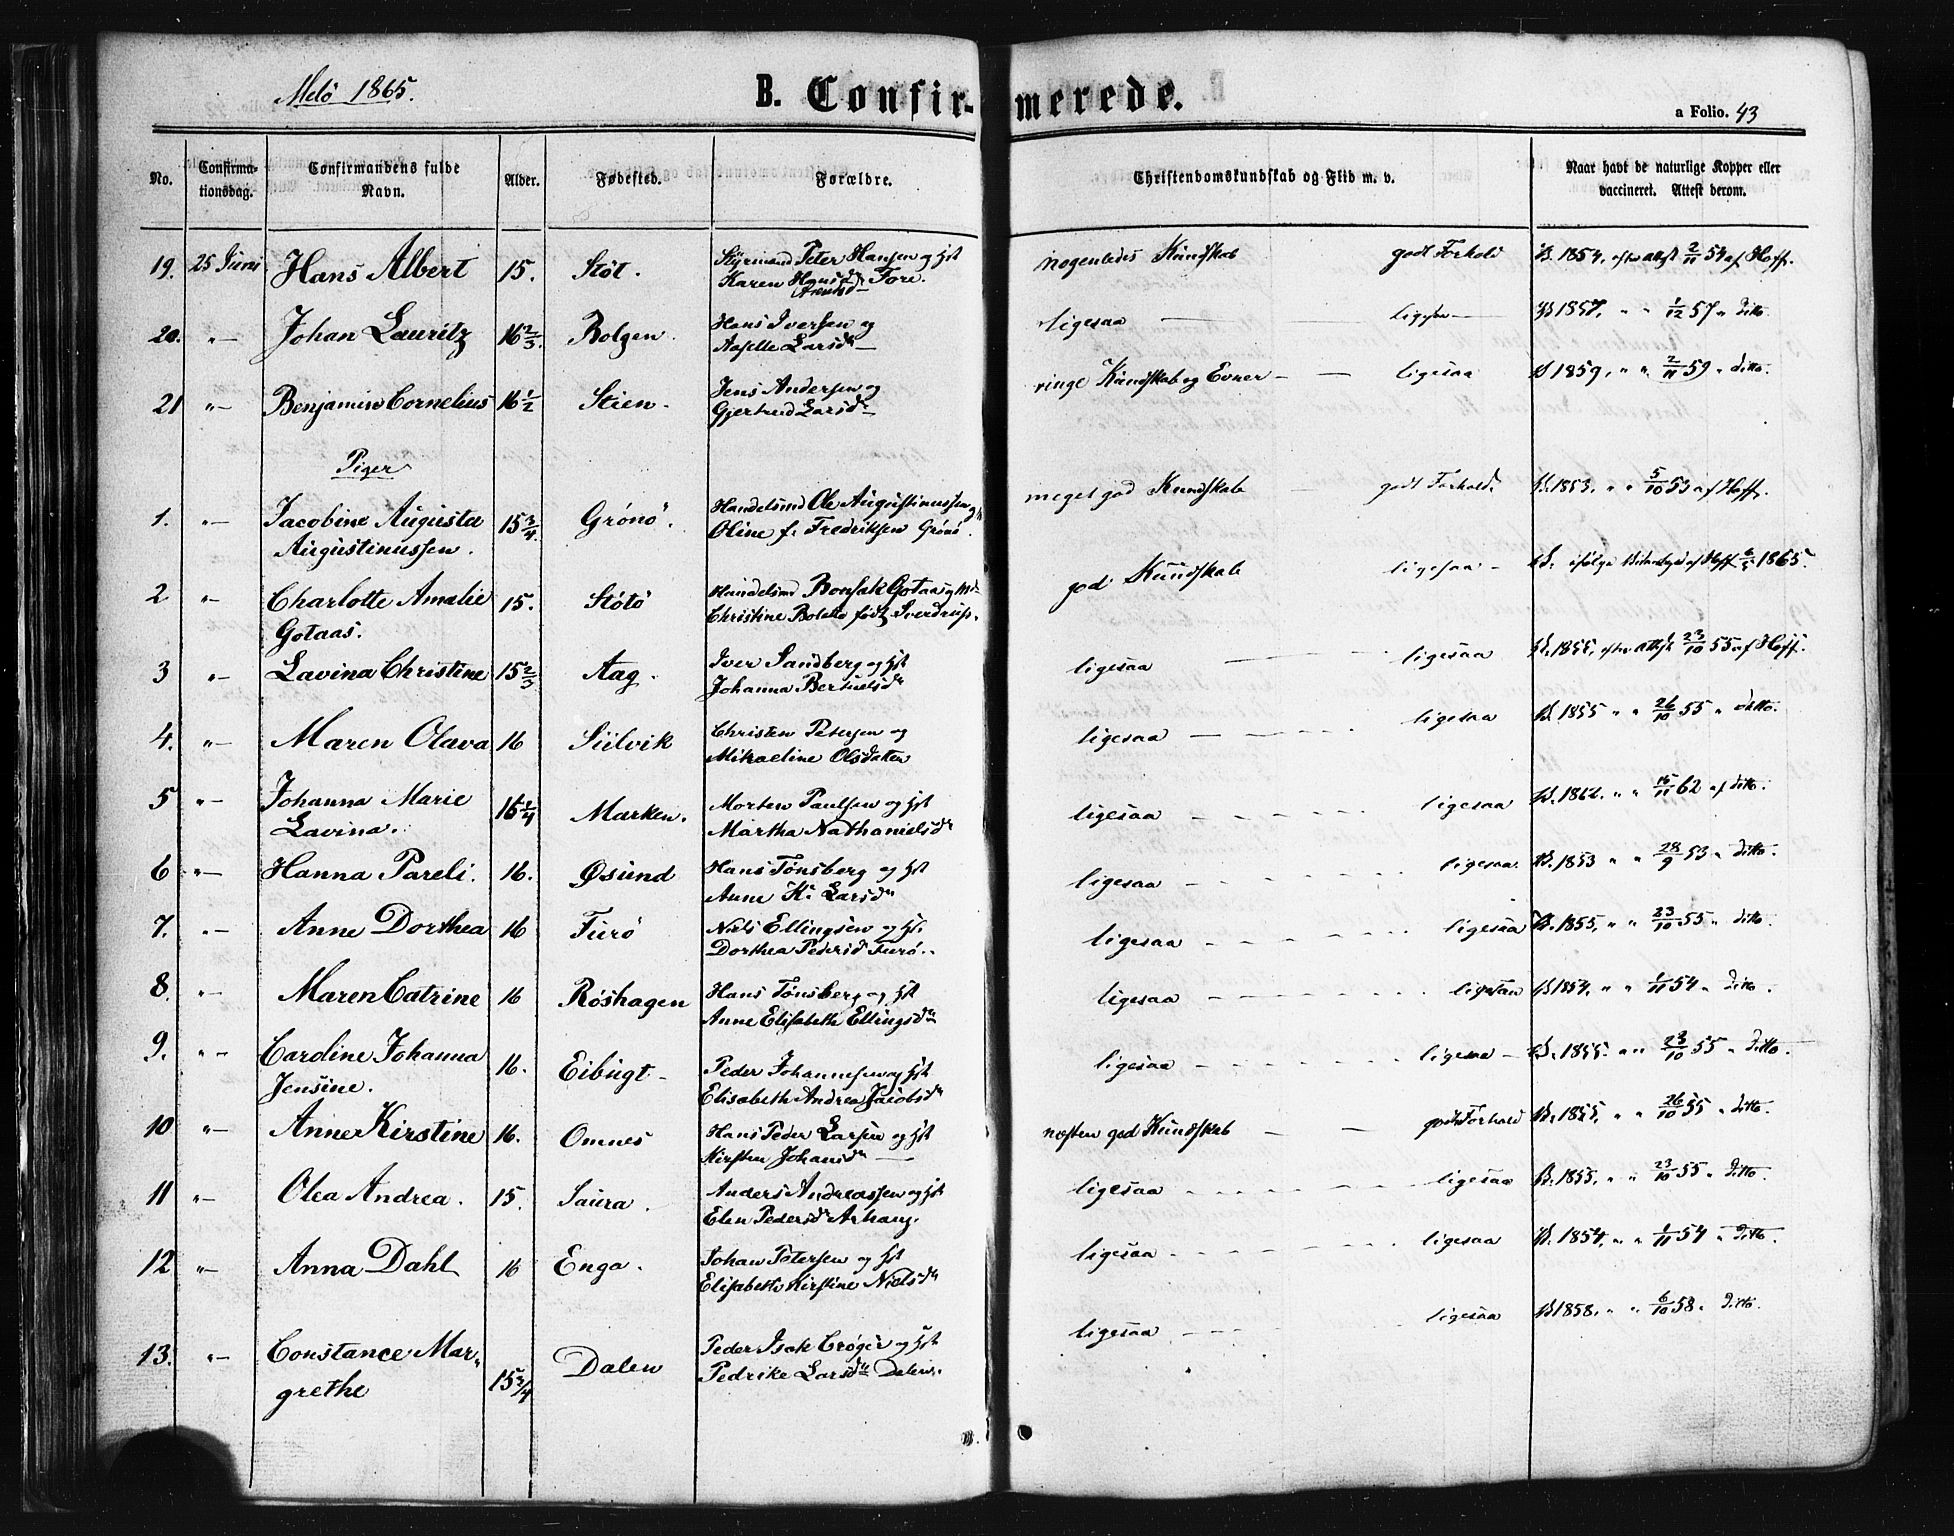 Melö 1865.
B. Confirmerede.
a Folio. 43
No. Confirmationsdag. Confirmandens fulde Navn. Alder. Fødested. Forældre. Christendomskundskab og Flid m. v. Naar havt de naturlige Kopper eller vaccineret. Attest derom.
19. 25 Juni Hans Albert 15. Stöt. Styrmand Peter Hansen og Hst nogenledes Kundskab godt Forhold B. 1854, efter attest 2/11 54 af Hoff.
Karen Fore.
20. "— Johan Lauritz 16 2/3. Bolgen. Hans Iversen og ligesaa — — ligesaa — B 1857, " " 1/12 57 " ditto
Larsdr —
21 "— Benjamin Cornelius 16 1/2 Stien. Jens Andersen og ringe Kundskab og Evner — — ligesaa B 1859, " " 2/11 59 " ditto.
Gjertrud Larsdr
Piger
1. "— Jacobine Augusta 15 3/4. Grönö. Handelsmd Ole Augustinussen og meget god Kundskab godt Forhold. B. 1853. " " 5/10 53 af Hoff.
Augustinussen. Oline f. Fredriksen Grönö.
2 "— Charlotte Amalie 15. Stötö Handelsmd Bonsak Gotaas og god Kundskab ligesaa — B. ifölge af Hoff 1865.
Gotaas. Christine födt Sverdrup.
3 "— Lavina Christine 15 2/3 Aag. Iver Sandberg og Hst ligesaa — — ligesaa B. 1855, efter attest 23/10 55 af Hoff.
Johanna Bertielsdr
4. "— Maren Olava 16 Süilvik Christen Petersen og ligesaa — — — ligesaa B. 1855 " " 26/10 55 " ditto.
Mikaeline Olsdatter
5 "— Johanna Marie 15 1/4 Marken. Morten Paulsen og Hst ligesaa - - - ligesaa B. 1862. " " 15/11 62 af ditto.
Lavina. Martha Nathanielsdr
6 "— Hanna Pareli. 16. Øsund Hans Tönsberg og Hst ligesaa - - - ligesaa. B. 1853 " " 28/9 53 " ditto.
Anne K. Larsdr
7. "— Anne Dorthea 16 Furö Niels Ellingsen og Hst. ligesaa - - - ligesaa B. 1855, " " 23/10 55 " ditto.
Dorthea Pedersd Furö.
8. "— Maren Catrine 16 Röshagen Hans Tönsberg og Hst ligesaa - - - ligesaa B 1854, " " 1/11 54 " ditto.
Anne Elisabeth Ellingsdr
9. "— Caroline Johanna 16. Eibugt — Peder Johannesen og Hst ligesaa - - - ligesaa — B. 1855. " " 23/10 55 " ditto.
Jensine. Elisabeth Andrea Jacobsdr
10 "— Anne Kirstine 16. Omnes Hans Peder Larsen og Hst næsten god Kundskab — — godt Forhold B. 1855, " " 26/10 55 " ditto.
Kirsten Johansdr —
11 "— Olea Andrea. 15. Saura. Anders Andreassen og Hst ligesaa - - - ligesaa B. 1855, " " 23/10 55 " ditto.
Elen Pedersdr Arhaug.
12 "— Anna Dahl 16 Enga. Johan Petersen og Hst ligesaa - - - ligesaa B. 1854, " " 1/11 54 " ditto.
Elisabeth Kirstine Nielsdr
13. "— Constance Mar- 15 3/4 Dalen Peder Isak Cröger og Hst ligesaa - - - ligesaa B 1858, " " 6/10 58 " ditto.
grethe Pedrike Larsdr Dalen.